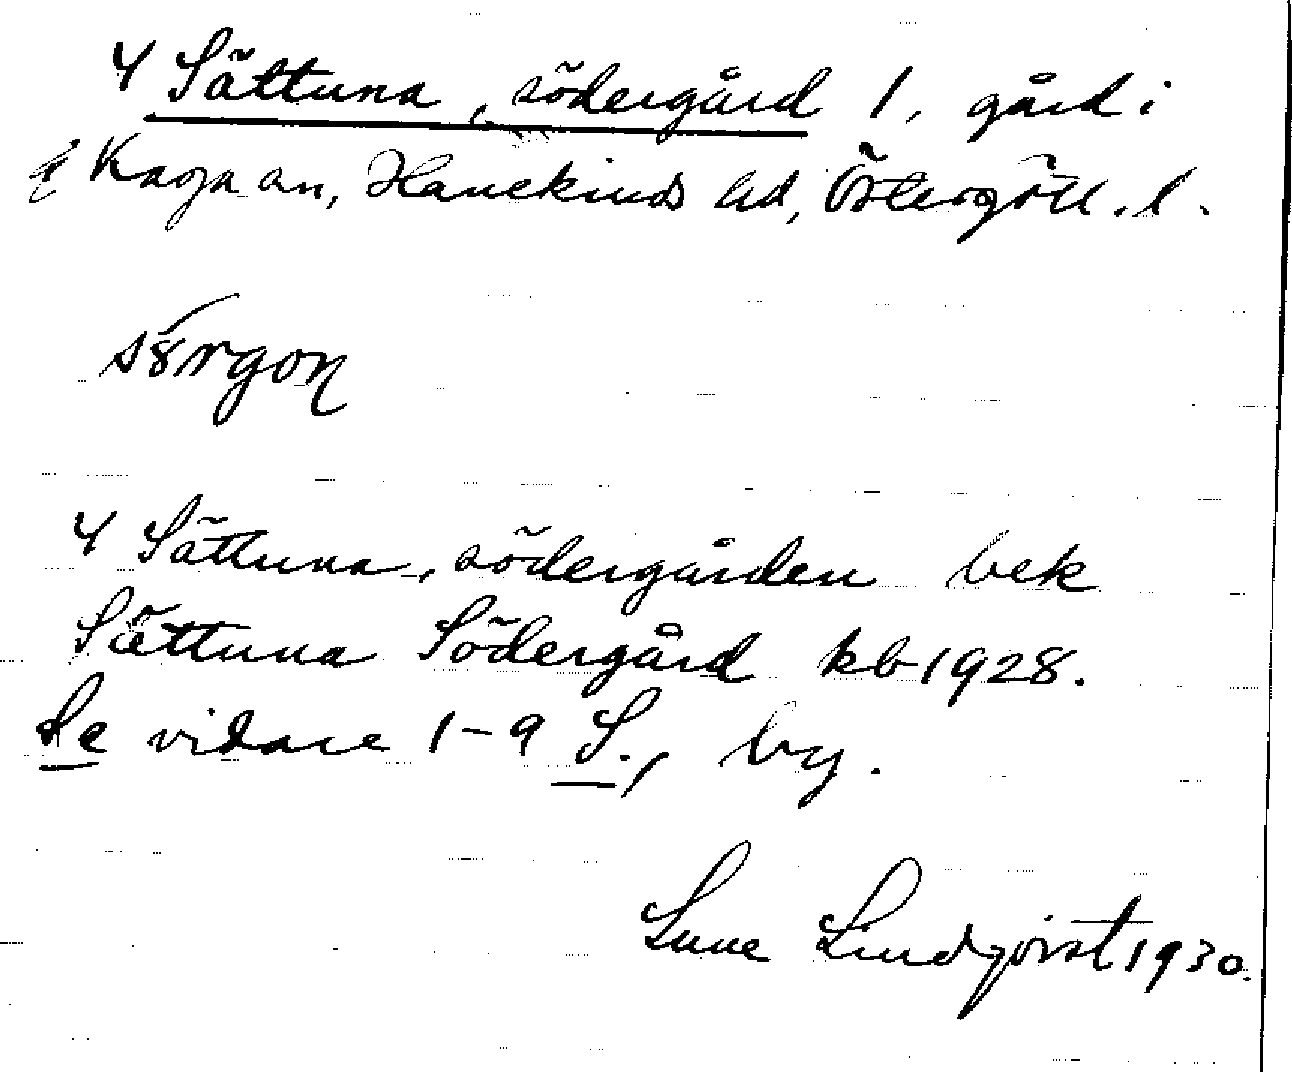 4 Sättuna, södergård 1, gård i
Kaga sn, Hanekinds hd, Östergötl. l.
4 Sättuna, södergården bek
Sättuna Södergård kb 1928.
Se vidare 1-9 S., by.
Sune Lindqvist 1930.